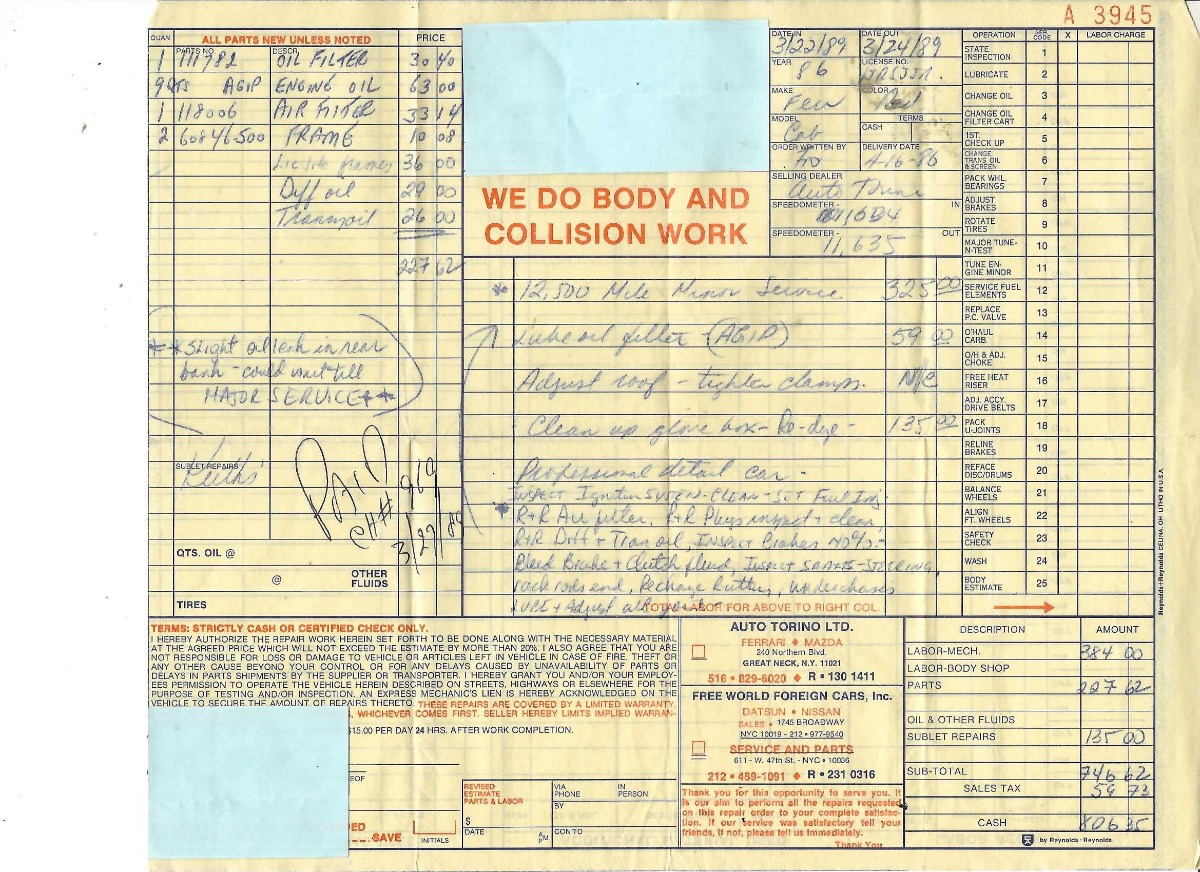 A 3945
QUAN. ALL PARTS NEW UNLESS NOTED PRICE
PARTS NO. DESCR.
1 111782 OIL FILTER 30 40
9QTS AGIP ENGINE OIL 63 00
1 118006 AIR FILTER 33 14
2 60846500 FRAME 10 08
36 00
Diff oil 29 00
Trans oil 26 00
227 62
** Slight oil leak in rear
bank - could wait till
MAJOR SERVICE **
SUBLET REPAIRS
Keith's
PAID
CH# 969
3/27/89
QTS. OIL @
@ OTHER FLUIDS
TIRES
WE DO BODY AND
COLLISION WORK
DATE IN 3/22/89 DATE OUT 3/24/89
YEAR 86 LICENSE NO.
MAKE Ferr COLOR Red
MODEL Cab CASH TERMS
ORDER WRITTEN BY DELIVERY DATE 4-16-86
SELLING DEALER
Auto Torino
SPEEDOMETER - IN
SPEEDOMETER - 11,635 OUT
* 12,500 Mile Minor Service 325 00
Lube oil filter (AGIP) 59 00
Adjust roof - tighten clamps. N/C
Clean up glove box - Re-dye - 135 00
Professional detail car -
INSPECT Ignition SYSTEM - CLEAN - SET Fuel Inj -
* R+R Air filter, R+R Plugs inspect + clean,
R+R Diff + Tran oil, INSPECT Brakes 40%. -
Bleed Brake + Clutch fluid, INSPECT SHAFTS - STEERING
rack rods end, Recharge Battery, Underchassis
LUBE + Adjust all
TOTAL LABOR FOR ABOVE TO RIGHT COL.
OPERATION SER. CODE X LABOR CHARGE
STATE INSPECTION 1
LUBRICATE 2
CHANGE OIL 3
CHANGE OIL FILTER CART 4
1ST. CHECK UP 5
CHANGE TRANS. OIL & SCREEN 6
PACK WHL. BEARINGS 7
ADJUST BRAKES 8
ROTATE TIRES 9
MAJOR TUNE-N-TEST 10
TUNE ENGINE MINOR 11
SERVICE FUEL ELEMENTS 12
REPLACE P.C. VALVE 13
O'HAUL CARB. 14
O/H & ADJ. CHOKE 15
FREE HEAT RISER 16
ADJ. ACCY. DRIVE BELTS 17
PACK U-JOINTS 18
RELINE BRAKES 19
REFACE DISC/DRUMS 20
BALANCE WHEELS 21
ALIGN FT. WHEELS 22
SAFETY CHECK 23
WASH 24
BODY ESTIMATE 25
Reynolds+Reynolds CELINA, OH LITHO IN U.S.A.
TERMS: STRICTLY CASH OR CERTIFIED CHECK ONLY.
I HEREBY AUTHORIZE THE REPAIR WORK HEREIN SET FORTH TO BE DONE ALONG WITH THE NECESSARY MATERIAL
AT THE AGREED PRICE WHICH WILL NOT EXCEED THE ESTIMATE BY MORE THAN 20%. I ALSO AGREE THAT YOU ARE
NOT RESPONSIBLE FOR LOSS OR DAMAGE TO VEHICLE OR ARTICLES LEFT IN VEHICLE IN CASE OF FIRE, THEFT OR
ANY OTHER CAUSE BEYOND YOUR CONTROL OR FOR ANY DELAYS CAUSED BY UNAVAILABILITY OF PARTS OR
DELAYS IN PARTS SHIPMENTS BY THE SUPPLIER OR TRANSPORTER. I HEREBY GRANT YOU AND/OR YOUR EMPLOY-
EES PERMISSION TO OPERATE THE VEHICLE HEREIN DESCRIBED ON STREETS, HIGHWAYS OR ELSEWHERE FOR THE
PURPOSE OF TESTING AND/OR INSPECTION. AN EXPRESS MECHANIC'S LIEN IS HEREBY ACKNOWLEDGED ON THE
VEHICLE TO SECURE THE AMOUNT OF REPAIRS THERETO. THESE REPAIRS ARE COVERED BY A LIMITED WARRANTY.
, WHICHEVER COMES FIRST. SELLER HEREBY LIMITS IMPLIED WARRAN-
$15.00 PER DAY 24 HRS. AFTER WORK COMPLETION.
EOF
ED
SAVE
INITIALS
REVISED ESTIMATE PARTS & LABOR
VIA PHONE IN PERSON
BY
$
DATE A P M CONTO
AUTO TORINO LTD.
FERRARI ♦ MAZDA
240 Northern Blvd.
GREAT NECK, N.Y. 11021
516 • 829-6020 ♦ R • 130 1411
FREE WORLD FOREIGN CARS, Inc.
DATSUN • NISSAN
SALES • 1745 BROADWAY
NYC 10019 - 212 • 977-9540
SERVICE AND PARTS
611 - W. 47th St. - NYC • 10036
212 • 489-1091 ♦ R • 231 0316
Thank you for this opportunity to serve you. It
is our aim to perform all the repairs requested
on this repair order to your complete satisfac-
tion. If our service was satisfactory tell your
friends, if not, please tell us immediately.
Thank You
DESCRIPTION AMOUNT
LABOR-MECH. 384 00
LABOR-BODY SHOP
PARTS 227 62
OIL & OTHER FLUIDS
SUBLET REPAIRS 135 00
SUB-TOTAL 746 62
SALES TAX 59 73
CASH 806 35
by Reynolds+Reynolds